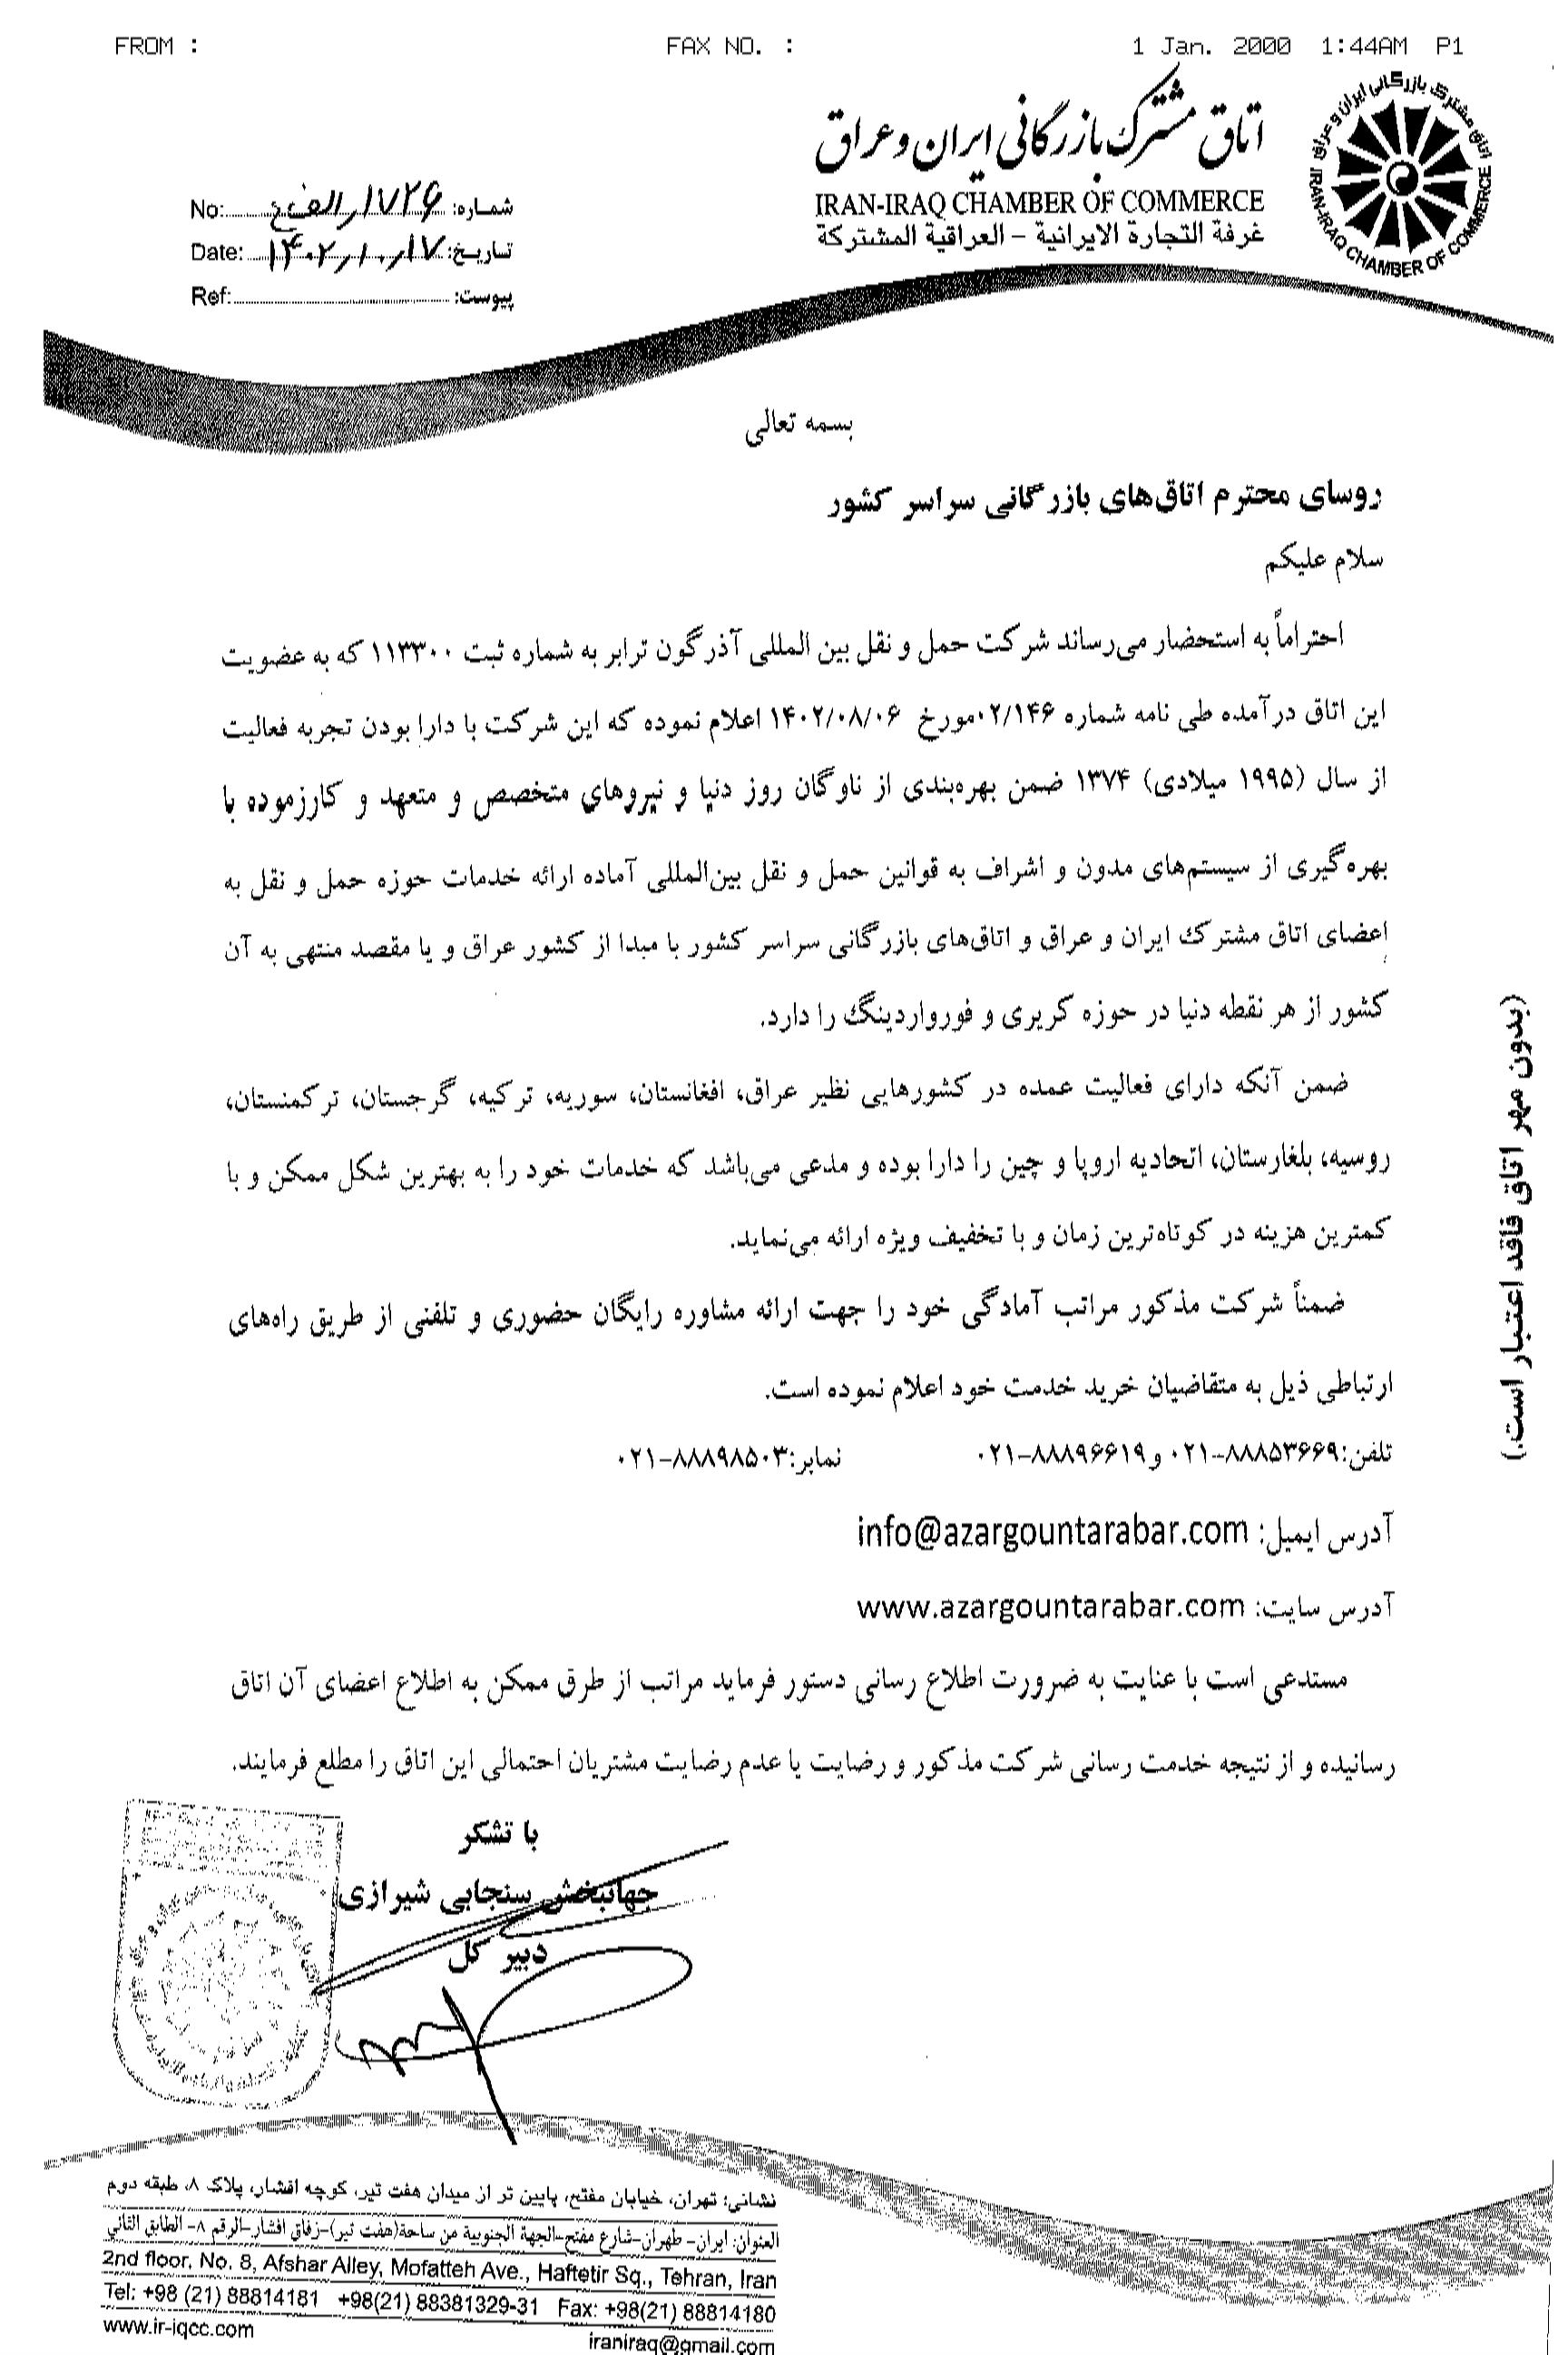 FROM : FAX NO. : 1 Jan. 2000 1:44AM P1
اتاق مشترک بازرگانی ایران و عراق
IRAN-IRAQ CHAMBER OF COMMERCE
غرفة التجارة الایرانیة – العراقیة المشترکة
اتاق مشترک بازرگانی ایران و عراق
IRAN-IRAQ CHAMBER OF COMMERCE
شماره: ۱۷۲۶/الف ع No:
تاریخ: ۱۴۰۲/۱۰/۱۷ Date:
پیوست: Ref:
بسمه تعالی
روسای محترم اتاق‌های بازرگانی سراسر کشور
سلام علیکم
احتراماً به استحضار می‌رساند شرکت حمل و نقل بین المللی آذرگون ترابر به شماره ثبت ۱۱۳۳۰۰ که به عضویت
این اتاق درآمده طی نامه شماره ۰۲/۱۴۶مورخ ۱۴۰۲/۰۸/۰۶ اعلام نموده که این شرکت با دارا بودن تجربه فعالیت
از سال (۱۹۹۵ میلادی) ۱۳۷۴ ضمن بهره‌بندی از ناوگان روز دنیا و نیروهای متخصص و متعهد و کارزموده با
بهره‌گیری از سیستم‌های مدون و اشراف به قوانین حمل و نقل بین‌المللی آماده ارائه خدمات حوزه حمل و نقل به
اعضای اتاق مشترک ایران و عراق و اتاق‌های بازرگانی سراسر کشور با مبدا از کشور عراق و یا مقصد منتهی به آن
کشور از هر نقطه دنیا در حوزه کریری و فورواردینگ را دارد.
ضمن آنکه دارای فعالیت عمده در کشورهایی نظیر عراق، افغانستان، سوریه، ترکیه، گرجستان، ترکمنستان،
روسیه، بلغارستان، اتحادیه اروپا و چین را دارا بوده و مدعی می‌باشد که خدمات خود را به بهترین شکل ممکن و با
کمترین هزینه در کوتاه‌ترین زمان و با تخفیف ویژه ارائه می‌نماید.
ضمناً شرکت مذکور مراتب آمادگی خود را جهت ارائه مشاوره رایگان حضوری و تلفنی از طریق راه‌های
ارتباطی ذیل به متقاضیان خرید خدمت خود اعلام نموده است.
تلفن: ۸۸۸۵۳۶۶۹-۰۲۱ و ۸۸۸۹۶۶۱۹-۰۲۱ نمابر: ۸۸۸۹۸۵۰۳-۰۲۱
آدرس ایمیل: info@azargountarabar.com
آدرس سایت: www.azargountarabar.com
مستدعی است با عنایت به ضرورت اطلاع رسانی دستور فرماید مراتب از طرق ممکن به اطلاع اعضای آن اتاق
رسانیده و از نتیجه خدمت رسانی شرکت مذکور و رضایت یا عدم رضایت مشتریان احتمالی این اتاق را مطلع فرمایند.
با تشکر
جهانبخش سنجابی شیرازی
دبیر کل
(بدون مهر اتاق فاقد اعتبار است.)
نشانی: تهران، خیابان مفتح، پایین تر از میدان هفت تیر، کوچه افشار، پلاک ۸، طبقه دوم
العنوان: ایران- طهران-شارع مفتح-الجهة الجنوبیة من ساحة(هفت تیر)-زقاق افشار-الرقم ۸- الطابق الثاني
2nd floor, No. 8, Afshar Alley, Mofatteh Ave., Haftetir Sq., Tehran, Iran
Tel: +98 (21) 88814181 +98(21) 88381329-31 Fax: +98(21) 88814180
www.ir-iqcc.com iraniraq@gmail.com